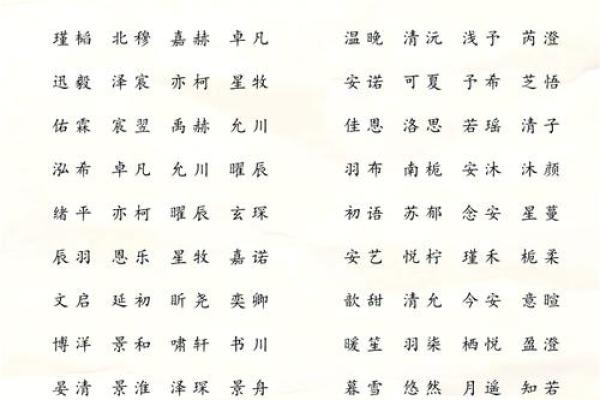 瑾韬 北穆 嘉赫 卓凡 温晚 清沅 浅予 芮澄
迅毅 泽宸 亦柯 星牧 安诺 可夏 予希 芝悟
佑霖 宸翌 禹赫 允川 佳恩 洛思 若瑶 清子
泓希 卓凡 允川 曜辰 羽布 南栀 安沐 沐颜
绪平 亦柯 曜辰 玄琛 初语 苏郁 念安 星蔓
辰羽 恩乐 星牧 嘉诺 安艺 悦柠 瑾禾 栀柔
文启 延初 昕尧 奕卿 歆甜 清允 今安 意暄
博洋 景和 啸轩 书川 暖笙 羽柒 栖悦 盈澄
晏清 景淮 泽琛 景舟 暮雪 悠然 月遥 知若